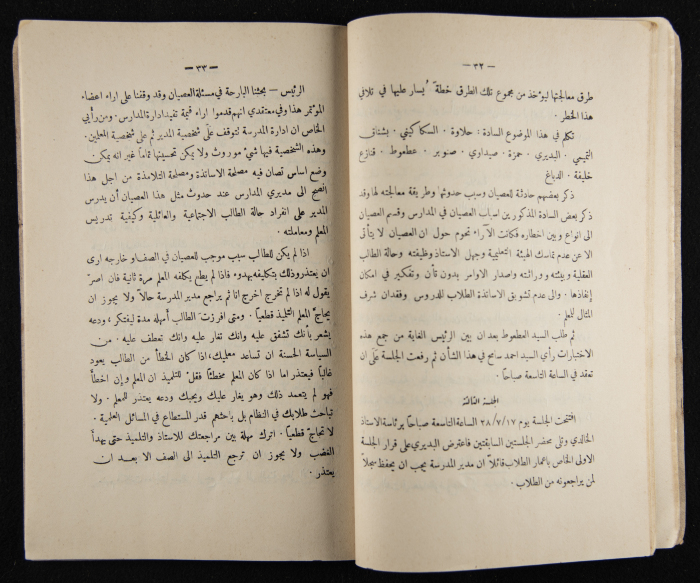 — ٣٢ —
طرق معالجتها ليؤخذ من مجموع تلك الطرق خطةً يُسار عليها في تلافي
هذا الخطر .
تكلم في هذا الموضوع السادة : حلاوة . السكاكيني . بشناق
التميمي . البديري . حمزة . صيداوي . صنوبر . عطعوط . قنازع
خليفة . الدباغ
ذكر بعضهم حادثة للعصيان وسبب حدوثها وطريقة معالجته لها وقد
ذكر بعض السادة المذكورين اسباب العصيان في المدارس وقسم العصيان
الى انواع وبين اخطاره فكانت الآراء تحوم حول ان العصيان لا يتأتى
الا عن عدم تماسك الهيئة التعليمية وجهل الاستاذ وظيفته وحالة الطالب
العقلية وبيئته ووراثته واصدار الاوامر بدون تأن وتفكير في امكان
إنفاذها . والى عدم تشويق الاساتذة الطلاب للدروس وفقدان شرف
المثال للمعلم .
ثم طلب السيد العطعوط بعد ان بين الرئيس الغاية من جمع هذه
الاختبارات رأي السيد احمد سامح في هذا الشأن ثم رفعت الجلسة على ان
تعقد في الساعة التاسعة صباحاً .
الجلسة الثالثة
افتتحت الجلسة يوم ٢٨/٧/١٧ الساعة التاسعة صباحاً برئاسة الاستاذ
الخالدي وتلي محضر الجلستين السابقتين فاعترض البديري على قرار الجلسة
الاولى الخاص باعمار الطلاب قائلاً ان مدير المدرسة يجب ان يحفظ سجلاً
لمن يراجعونه من الطلاب .
— ٣٣ —
الرئيس — بحثنا البارحة في مسئلة العصيان وقد وقفنا على اراء اعضاء
المؤتمر هذا وفي معتقدي انهم قدموا اراء قيمة تفيد ادارة المدارس . ومن رأيي
الخاص ان ادارة المدرسة تتوقف على شخصية المدير ثم على شخصية المعلمين .
وهذه الشخصية فيها شيء موروث ولا يمكن تحسينها تماماً غير انه يمكن
وضع اساس تصان فيه مصلحة الاساتذة ومصلحة التلامذة من اجل هذا
انصح الى مديري المدارس عند حدوث مثل هذا العصيان أن يدرس
المدير على انفراد حالة الطالب الاجتماعية والعائلية وكيفية تدريس
المعلم ومعاملته .
اذا لم يكن للطالب سبب موجب للعصيان في الصف او خارجه ارى
ان يعتذر وذلك بتكليفه بهدوء فاذا لم يطع يكلفه المعلم مرة ثانية فان اصرّ
يقول له اذا لم تخرج اخرج انا ثم يراجع مدير المدرسة حالاً ولا يجوز ان
يحاجّ المعلم التلميذ قطعياً . ومتى افرزت الطالب أمهله مدة ليفتكر ، ودعه
يشعر بأنك تشفق عليه وانك تغار عليه وانك تعطف عليه . من
السياسة الحسنة ان تساعد معلميك ، اذا كان الخطأ من الطالب يعود
غالباً فيعتذر اما اذا كان المعلم مخطئاً فقل للتلميذ ان المعلم وإن اخطأ
فهو لم يتعمد ذلك وهو يغار عليك ويحبك ودعه يعتذر للمعلم . ولا
تباحث طلابك في النظام بل باحثهم قدر المستطاع في المسائل العلمية .
لا تحاجّ قطعياً . اترك مهلة بين مراجعتك للاستاذ والتلميذ حتى يهدأ
الغضب ولا يجوز ان ترجع التلميذ الى الصف الا بعد ان
يعتذر .